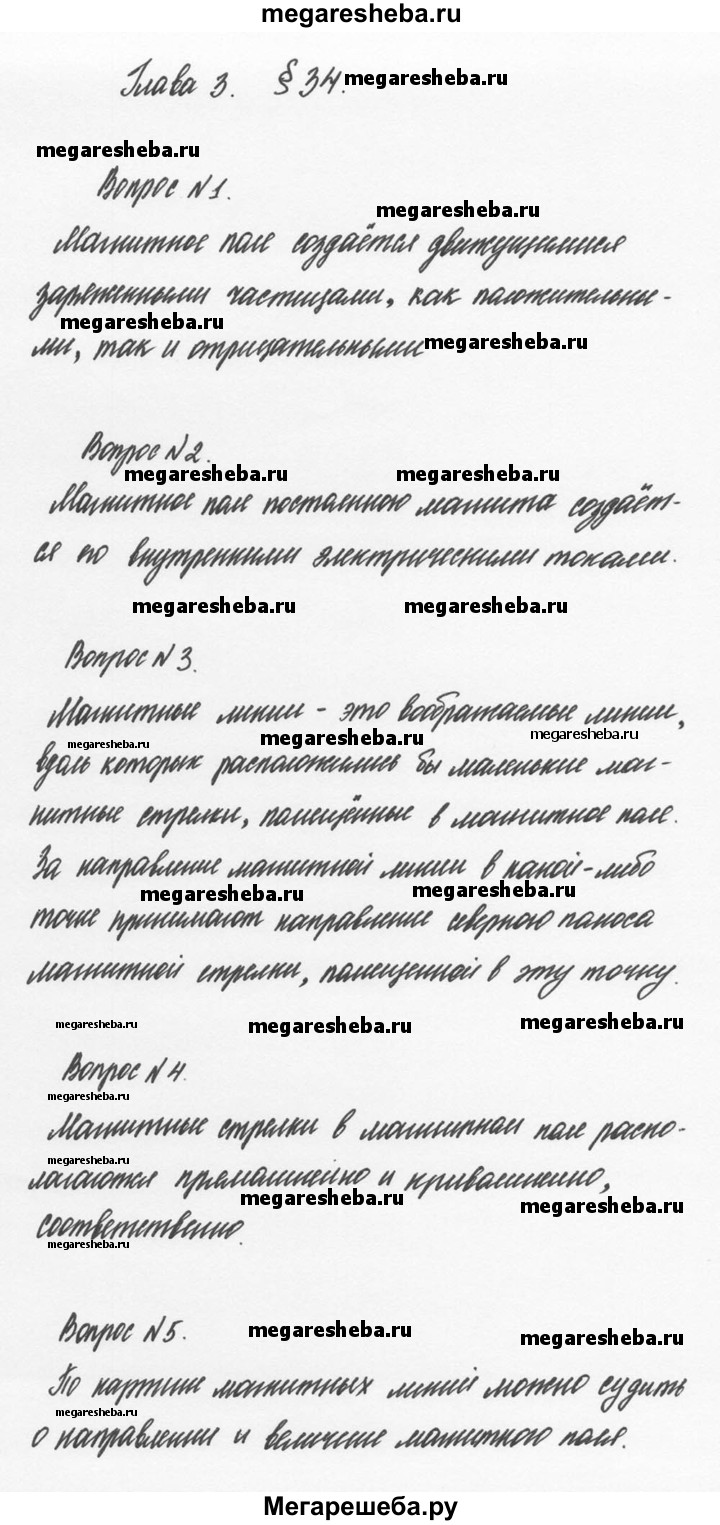 megaresheba.ru
Глава 3. § 34. megaresheba.ru
megaresheba.ru
Вопрос №1.
megaresheba.ru
Магнитное поле создаётся движущимися
заряженными частицами, как положительны-
megaresheba.ru
ми, так и отрицательными megaresheba.ru
Вопрос №2.
megaresheba.ru megaresheba.ru
Магнитное поле постоянного магнита создаёт-
ся его внутренними электрическими токами.
megaresheba.ru megaresheba.ru
Вопрос №3.
Магнитные линии - это воображаемые линии,
megaresheba.ru megaresheba.ru megaresheba.ru
вдоль которых расположились бы маленькие маг-
нитные стрелки, помещённые в магнитное поле.
За направление магнитной линии в какой-либо
megaresheba.ru megaresheba.ru
точке принимают направление северного полюса
магнитной стрелки, помещенной в эту точку.
megaresheba.ru megaresheba.ru megaresheba.ru
Вопрос №4.
megaresheba.ru
Магнитные стрелки в магнитном поле распо-
megaresheba.ru
лагаются прямолинейно и криволинейно,
megaresheba.ru megaresheba.ru
соответственно.
megaresheba.ru
Вопрос №5. megaresheba.ru megaresheba.ru
По картине магнитных линий можно судить
megaresheba.ru
о направлении и величине магнитного поля.
Мегарешеба.ру